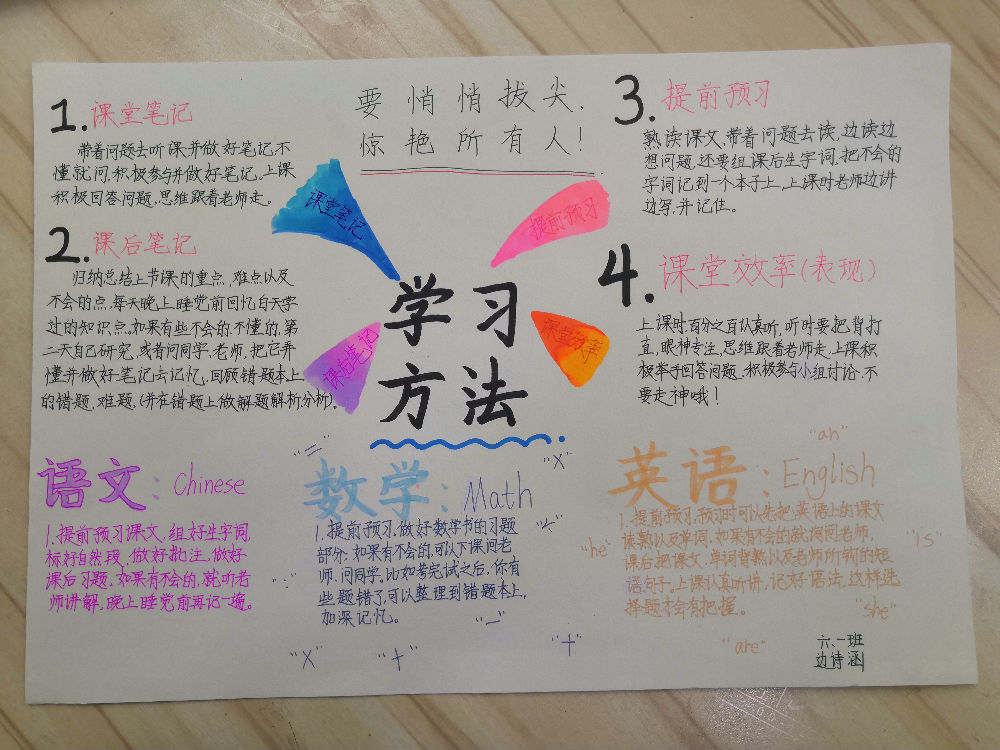 要悄悄拔尖,
惊艳所有人!
1.课堂笔记
带着问题去听课并做好笔记,不
懂就问,积极参与并做好笔记。上课
积极回答问题,思维跟着老师走。
2.课后笔记
归纳总结上节课的重点,难点以及
不会的点,每天晚上睡觉前回忆白天学
过的知识点。如果有些不会的,不懂的,第
二天自己研究,或者问同学,老师,把它弄
懂并做好笔记去记忆,回顾错题本上
的错题,难题,(并在错题上做解题解析,分析)。
课堂笔记
提前预习
课后笔记
课堂效率
学习
方法
3.提前预习
熟读课文,带着问题去读,边读边
想问题,还要组课后生字词,把不会的
字词记到一个本子上,上课时老师边讲
边写,并记住。
4.课堂效率(表现)
上课时百分之百认真听,听时要把背打
直,眼神专注,思维跟着老师走,上课积
极举手回答问题,积极参与小组讨论,不
要走神哦!
语文:Chinese
1.提前预习课文,组好生字词,
标好自然段,做好批注,做好
课后习题,如果有不会的,就听老
师讲解,晚上睡觉前再记一遍。
数学:Math
1.提前预习,做好数学书的习题
部分,如果有不会的,可以下课问老
师,问同学,比如考完试之后,你有
些题错了,可以整理到错题本上,
加深记忆。
英语:English
1.提前预习,预习时可以先把英语上的课文
读熟以及单词,如果有不会的就询问老师,
课后把课文,单词背熟以及老师所讲的短
语句子。上课认真听讲,记好语法,这样选
择题才会有把握。
"="
"x"
"÷"
"÷"
"x"
"+"
"-"
"+"
"an"
"he"
"is"
"she"
"are"
六、一班
边诗涵